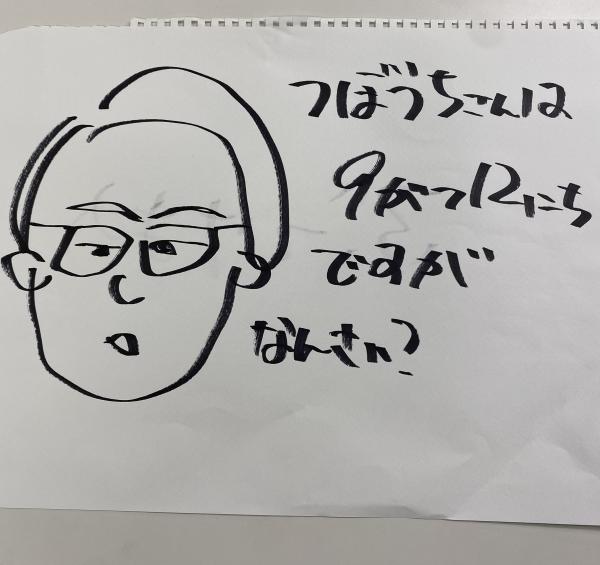 つぼうちさんは
9がつ12にち
ですが
なんさい?